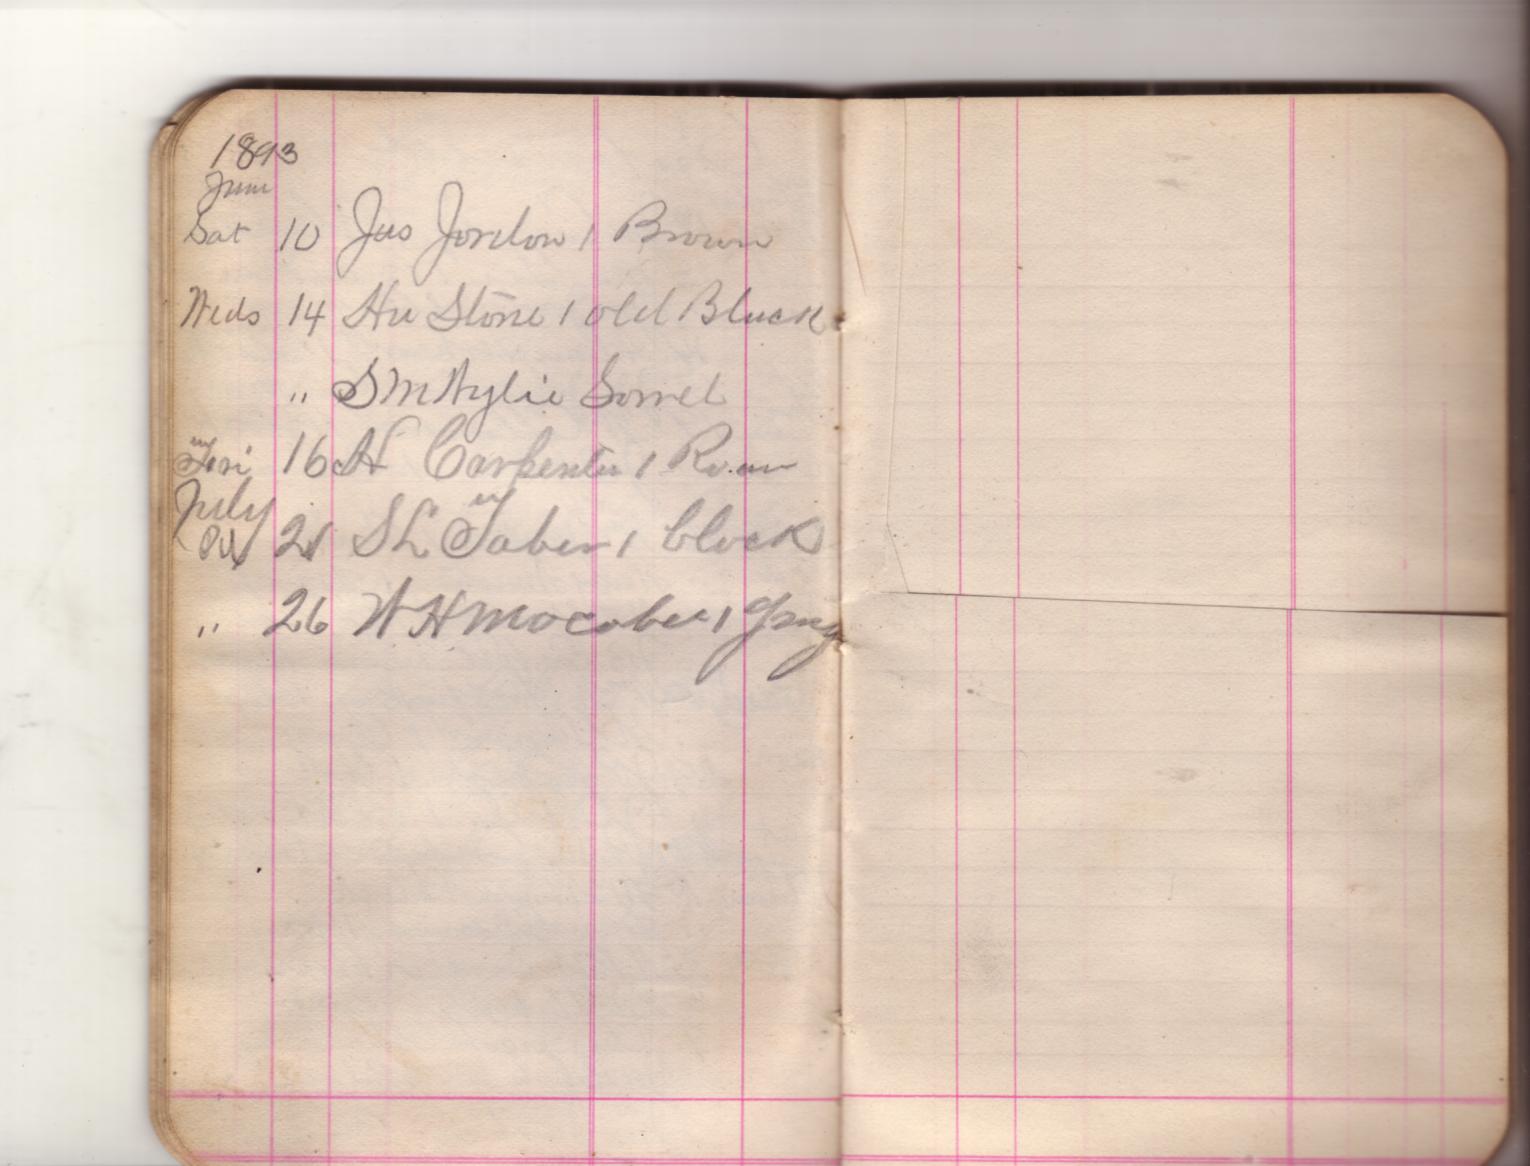 1893
June
Sat 10 Jas Jordon 1 Brown
Weds 14 Hu Stone 1 old Black
" S M Wylie Sorrel
Fri 16 H Carpenter 1 Roan
July
21 S L Taber 1 black
" 26 W H Mocaber 1 gray